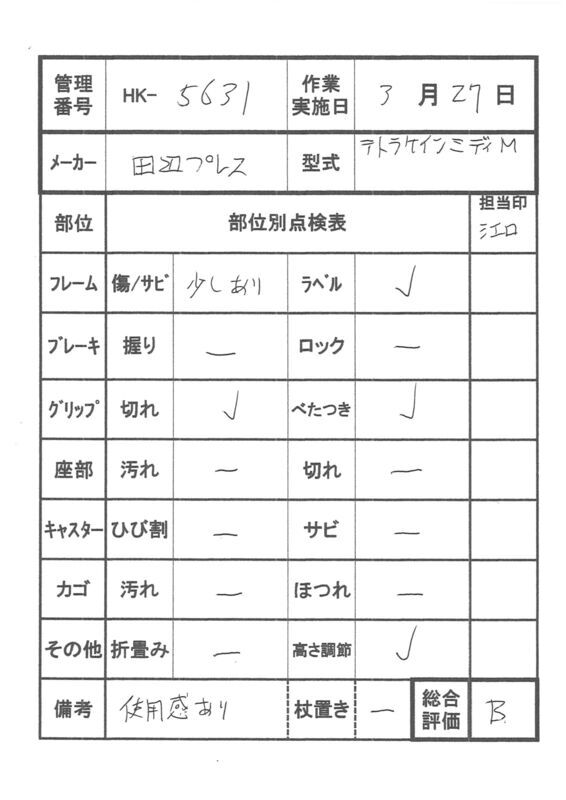 管理番号 HK- 5631 作業実施日 3月27日
メーカー 田辺プレス 型式 テトラケインミディM
部位 部位別点検表 担当印 江口
フレーム 傷/サビ 少しあり ラベル ✓
ブレーキ 握り ― ロック ―
グリップ 切れ ✓ べたつき ✓
座部 汚れ ― 切れ ―
キャスター ひび割 ― サビ ―
カゴ 汚れ ― ほつれ ―
その他 折畳み ― 高さ調節 ✓
備考 使用感あり 杖置き ― 総合評価 B